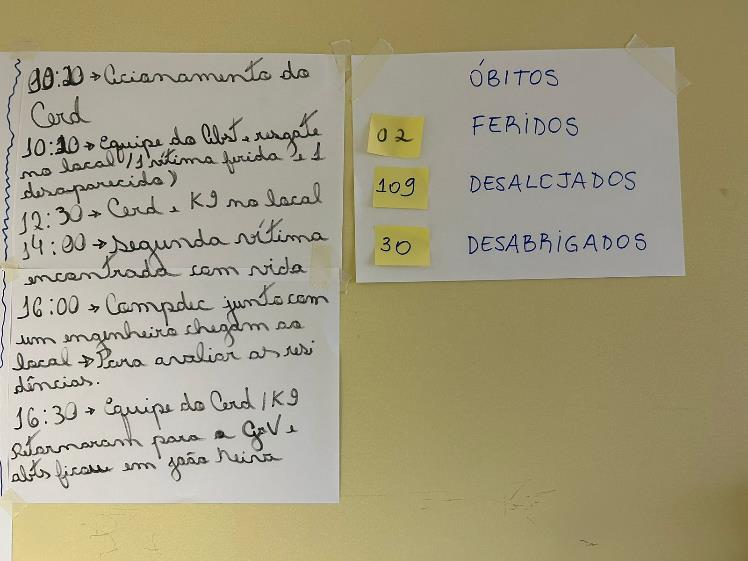 09:20 → Acionamento do
Cerd
10:10 → Equipe do Abst e resgate
no local / 1 vítima ferida e 1
desaparecido)
12:30 → Cerd e K9 no local
14:00 → segunda vítima
encontrada com vida
16:00 → Compdec junto com
um engenheiro chegam ao
local → Para avaliar as resi
dências.
16:30 → Equipe do Cerd / K9
retornaram para a GV e
abts ficou em joão neiva
ÓBITOS
02 FERIDOS
109 DESALOJADOS
30 DESABRIGADOS